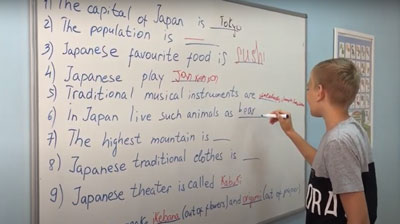 1) The capital of Japan is Tokyo
2) The population is ___
3) Japanese favourite food is sushi
4) Japanese play Jankenjon
5) Traditional musical instruments are
6) In Japan live such animals as bear
7) The highest mountain is __
8) Japanese traditional clothes is __
9) Japanese theater is called Kabuki
Ikebana (out of flowers) and origami (out of paper)
DORA